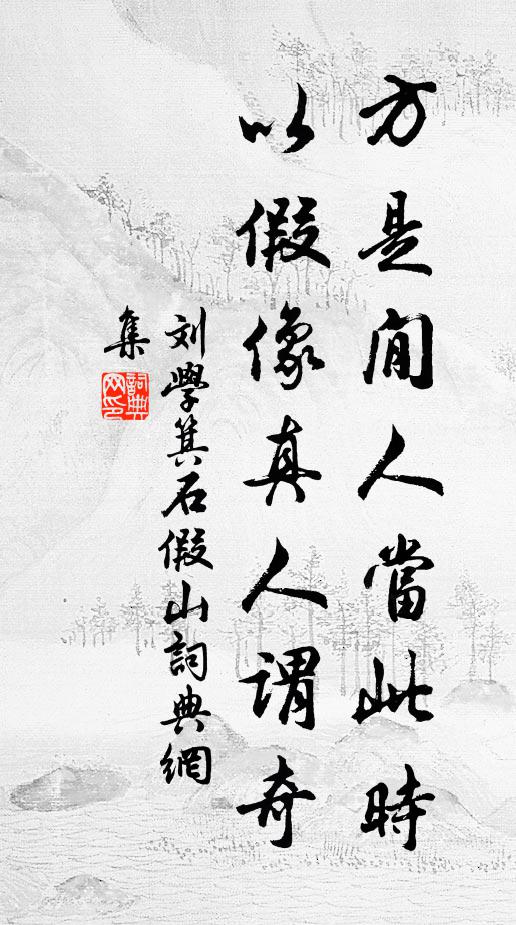 方是閒人當此時
以假像真人謂奇
刘學箕石假山詞典網
集
詞典網印